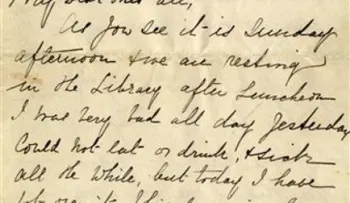 My dear ones all,
As you see it is Sunday
afternoon & we are resting
in the Library after Luncheon
I was very bad all day Yesterday
Could not eat or drink, & sick
all the while, but today I have